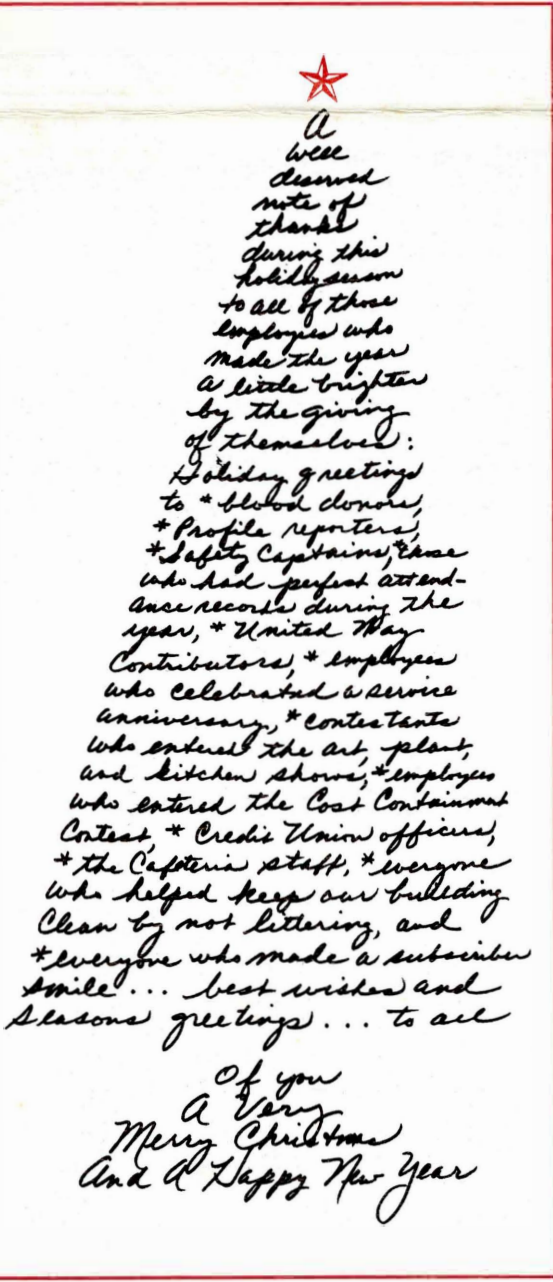 A
well
deserved
note of
thanks
during this
holiday season
to all of those
employees who
made the year
a little brighter
by the giving
of themselves:
Holiday greetings
to * blood donors,
* Profile reporters,
* Safety Captains, * those
who had perfect attend-
ance records during the
year, * United Way
Contributors, * employees
who celebrated a service
anniversary, * contestants
who entered the art, plant,
and kitchen shows, * employees
who entered the Cost Containment
Contest, * Credit Union officers,
* the Cafeteria staff, * everyone
who helped keep our building
Clean by not littering, and
* everyone who made a subscriber
smile ... best wishes and
seasons greetings ... to all
Of you
A Very
Merry Christmas
And A Happy New Year